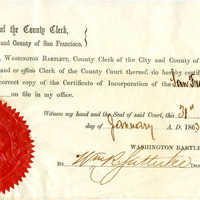 of the County Clerk,
and County of San Francisco.
WASHINGTON BARTLETT, County Clerk of the City and County of
and ex officio Clerk of the County Court thereof, do hereby certify
correct copy of the Certificate of Incorporation of the San Fra
on file in my office.
Witness my hand and the Seal of said Court, this 21st
day of January A. D. 186
WASHINGTON BARTLE
By Wm R. Satterlee De